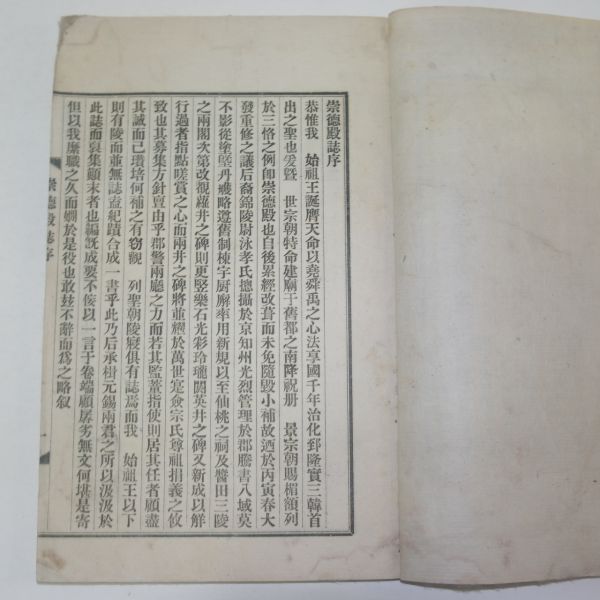 崇德殿誌序
恭惟我 始祖王誕膺天命以堯舜禹之心法享國千年治化郅隆實三韓首
出之聖也爰曁 世宗朝特命建廟于舊都之南降祝册 景宗朝賜楣額列
於三恪之例卽崇德殿也自後累經改葺而未免隨毀小補故迺於丙寅春大
發重修之議后裔錦陵尉泳孝氏摠攝於京知州光烈管理於郡騰書八域莫
不影從塗墍丹雘略遵舊制棟宇厨廨率用新規以至仙桃之祠及醬田三陵
之兩閣次第改觀蘿井之碑則更竪樂石光彩玲瓏閼英井之碑又新成以鮮
行過者指點嗟賞之心而兩井之碑將並耀於萬世寔僉宗氏尊祖捐義之攸
致也其募集方針亶由乎郡警兩廳之力而若其監董指使則居其任者顧盡
其誠而已瓚培何補之有窃覵 列聖朝陵寢俱有誌焉而我 始祖王以下
則有陵而並無誌盍紀蹟合成一書乎此乃后承楫元錫兩君之所以汲汲於
此誌而裒集顚末者也編旣成要不侫以一言于卷端顧孱劣無文何堪是寄
但以我縻職之久而嫺於是役也敢玆不辭而爲之略叙
崇德殿誌序
一